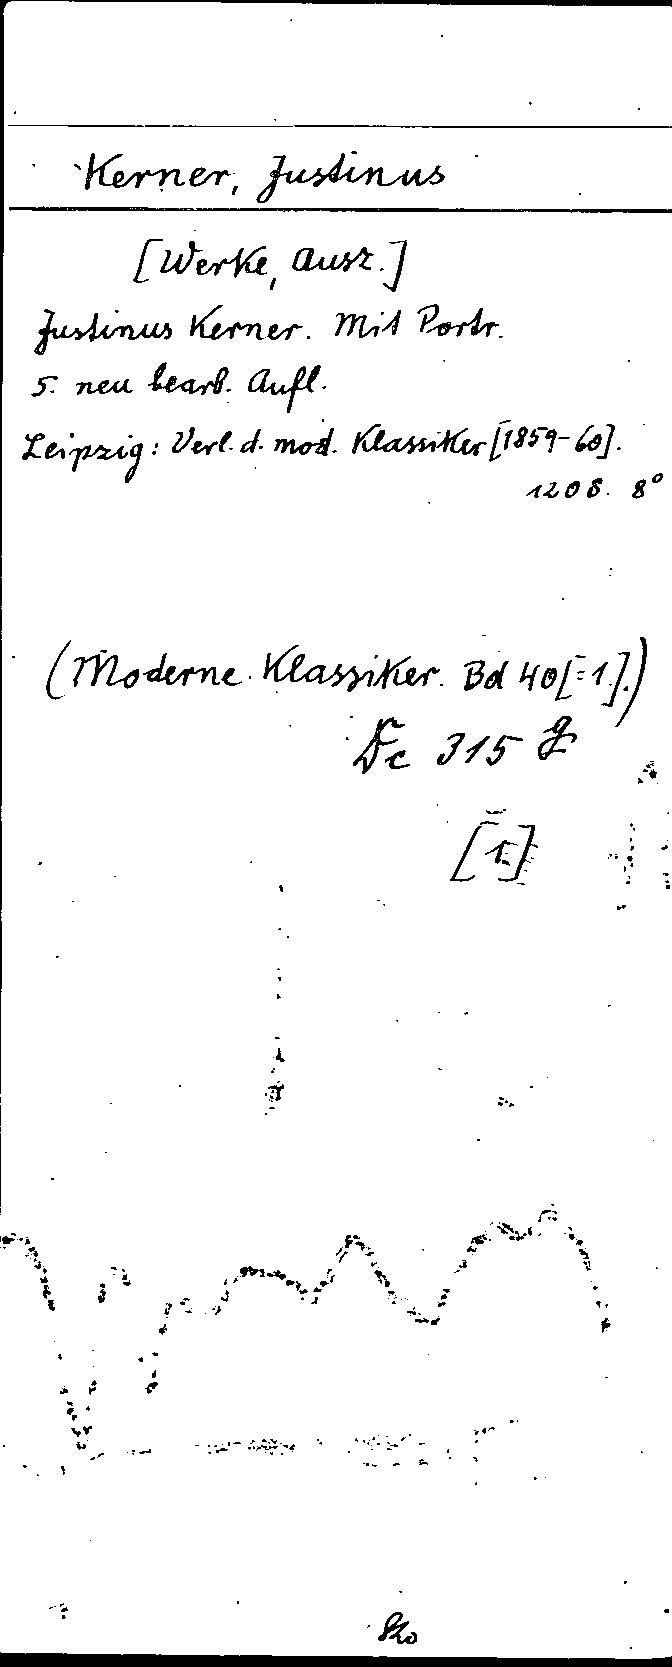 Kerner, Justinus
[Werke, Ausz.]
Justinus Kerner. Mit Portr.
5. neu bearb. Aufl.
Leipzig: Verl. d. mod. Klassiker [1859-60].
120 S. 8°
(Moderne Klassiker. Bd 40[=1].)
315
[1]